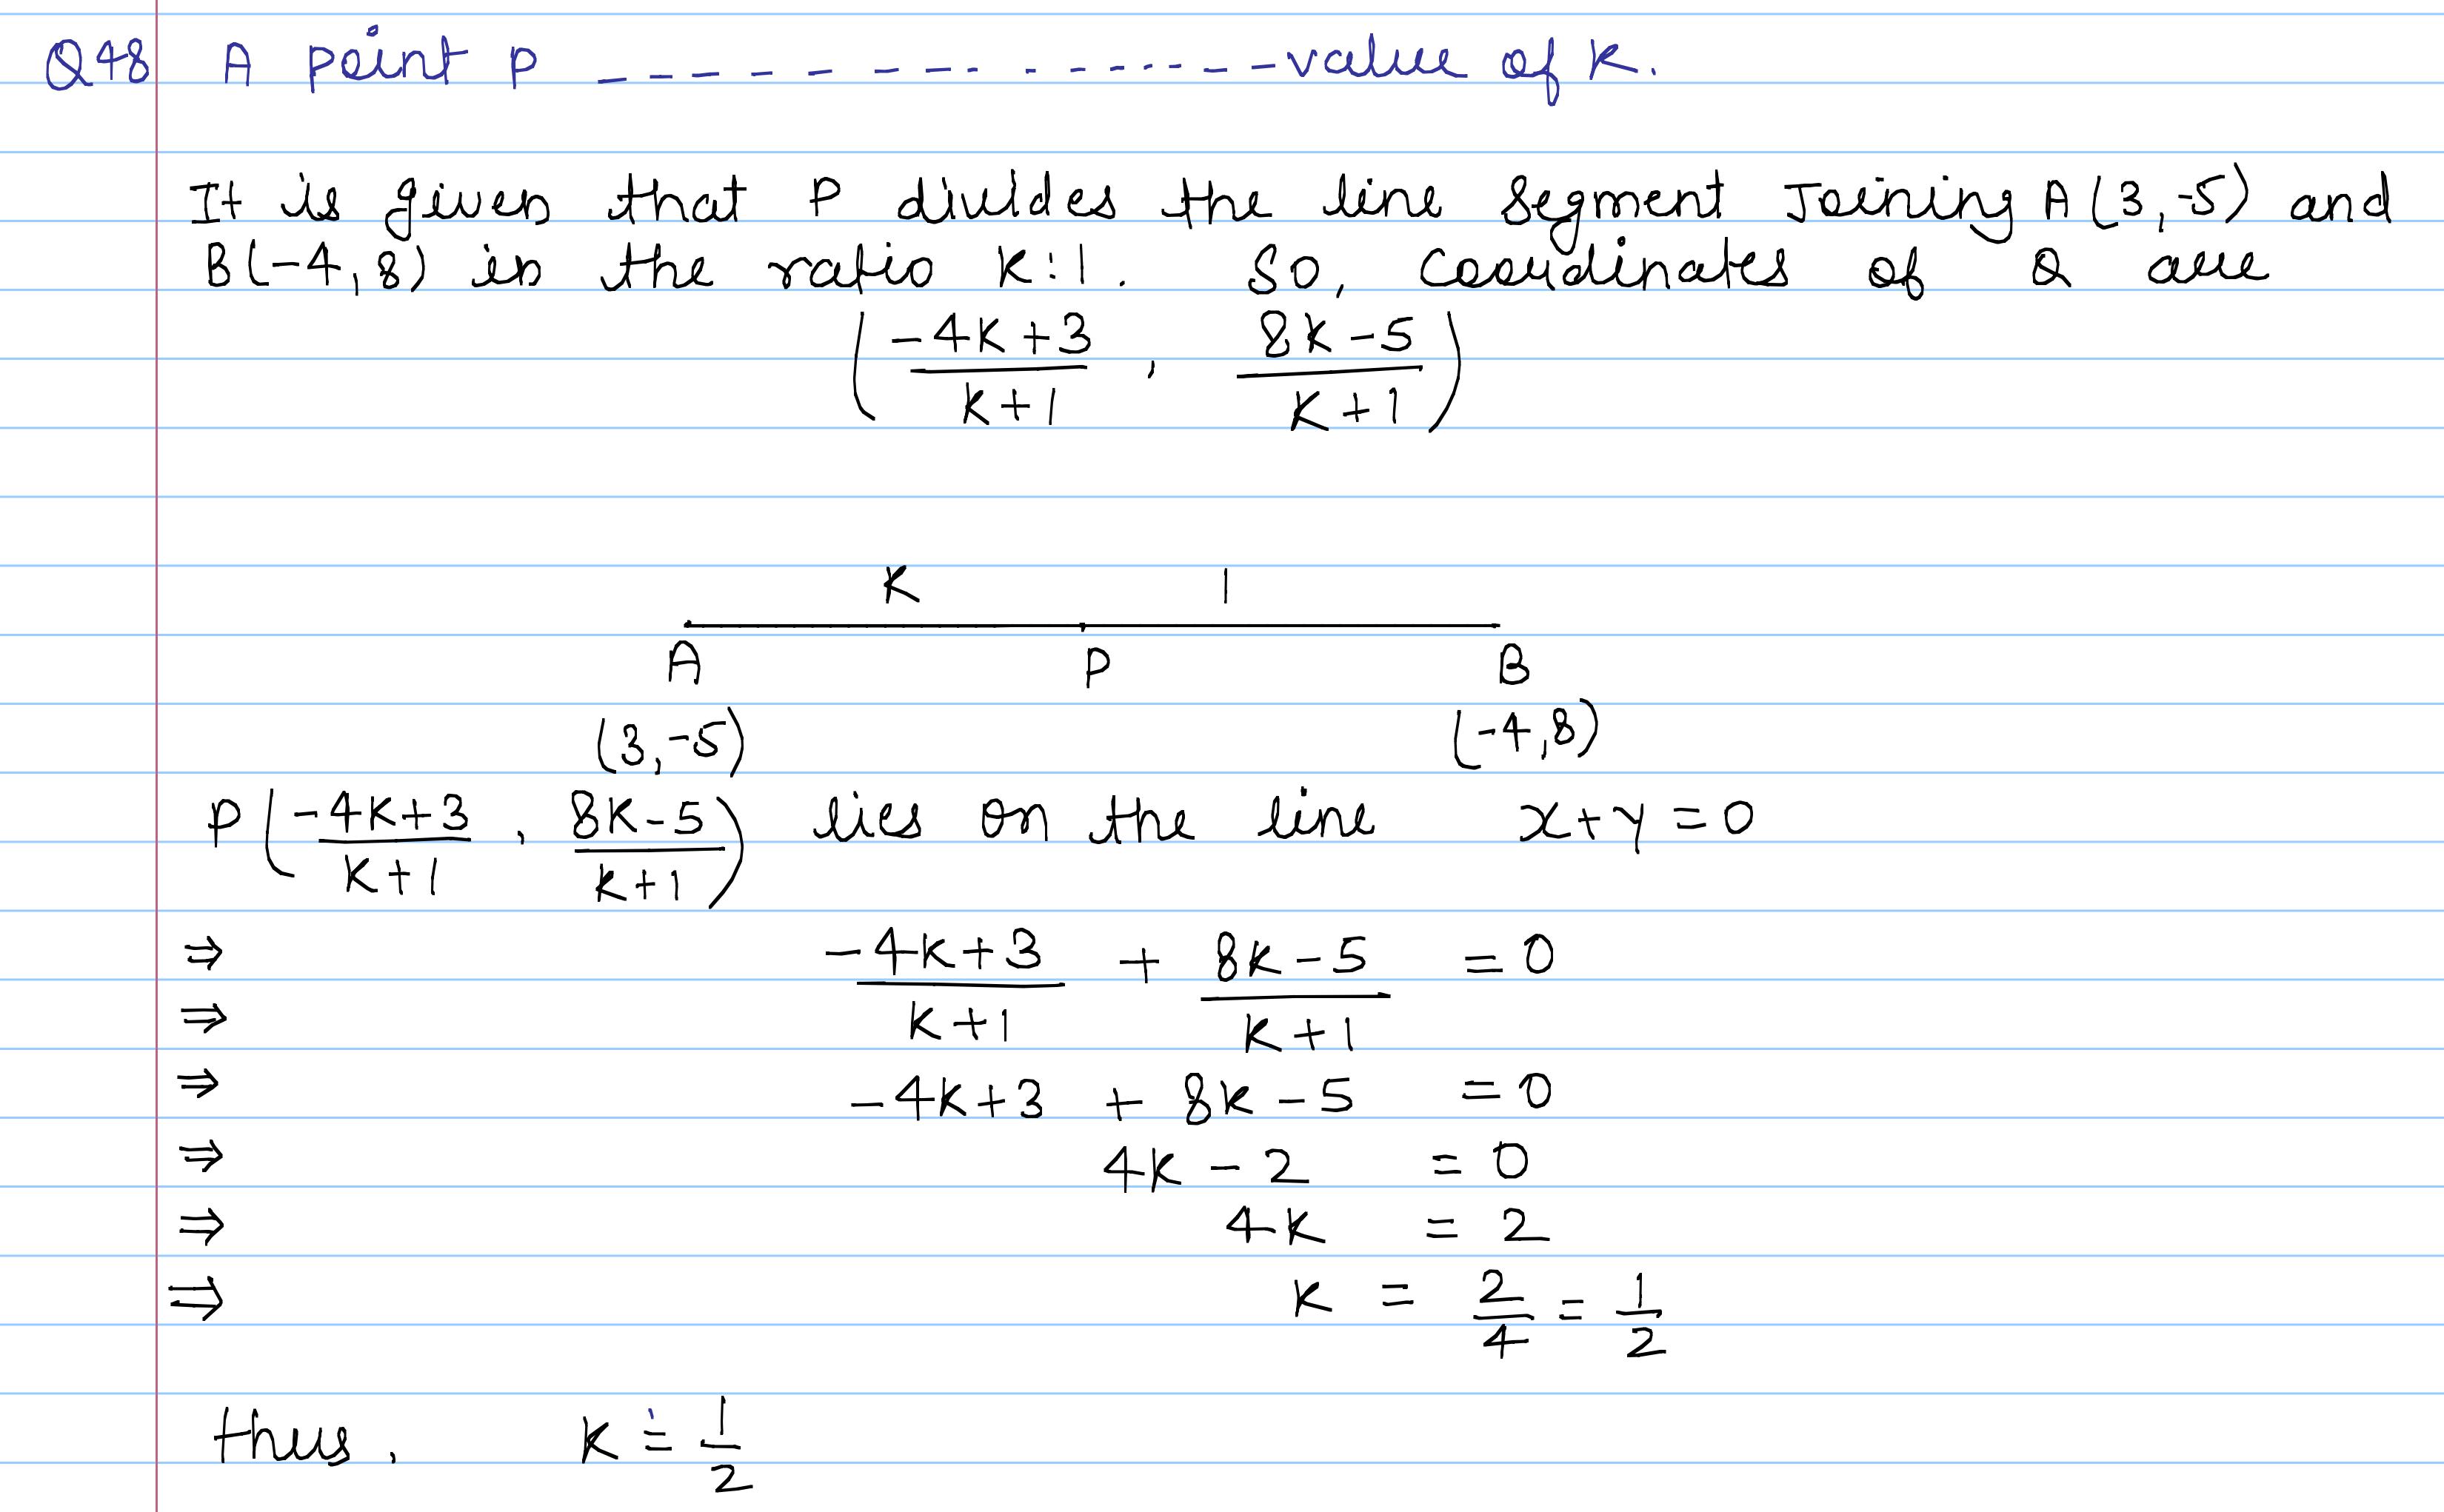 Q48 A point P - - - - - - - - - - - - - value of K.
It is given that P divides the line segment Joining A(3,-5) and
B(-4,8) in the ratio K:1. So, coordinates of Q are
( (-4K+3)/(K+1) , (8K-5)/(K+1) )
K 1
A P B
(3,-5) (-4,8)
P( (-4K+3)/(K+1) , (8K-5)/(K+1) ) lies on the line x+y=0
⇒ (-4K+3)/(K+1) + (8K-5)/(K+1) = 0
⇒
⇒ -4K+3 + 8K-5 = 0
⇒ 4K-2 = 0
⇒ 4K = 2
⇒ K = 2/4 = 1/2
thus, K = 1/2